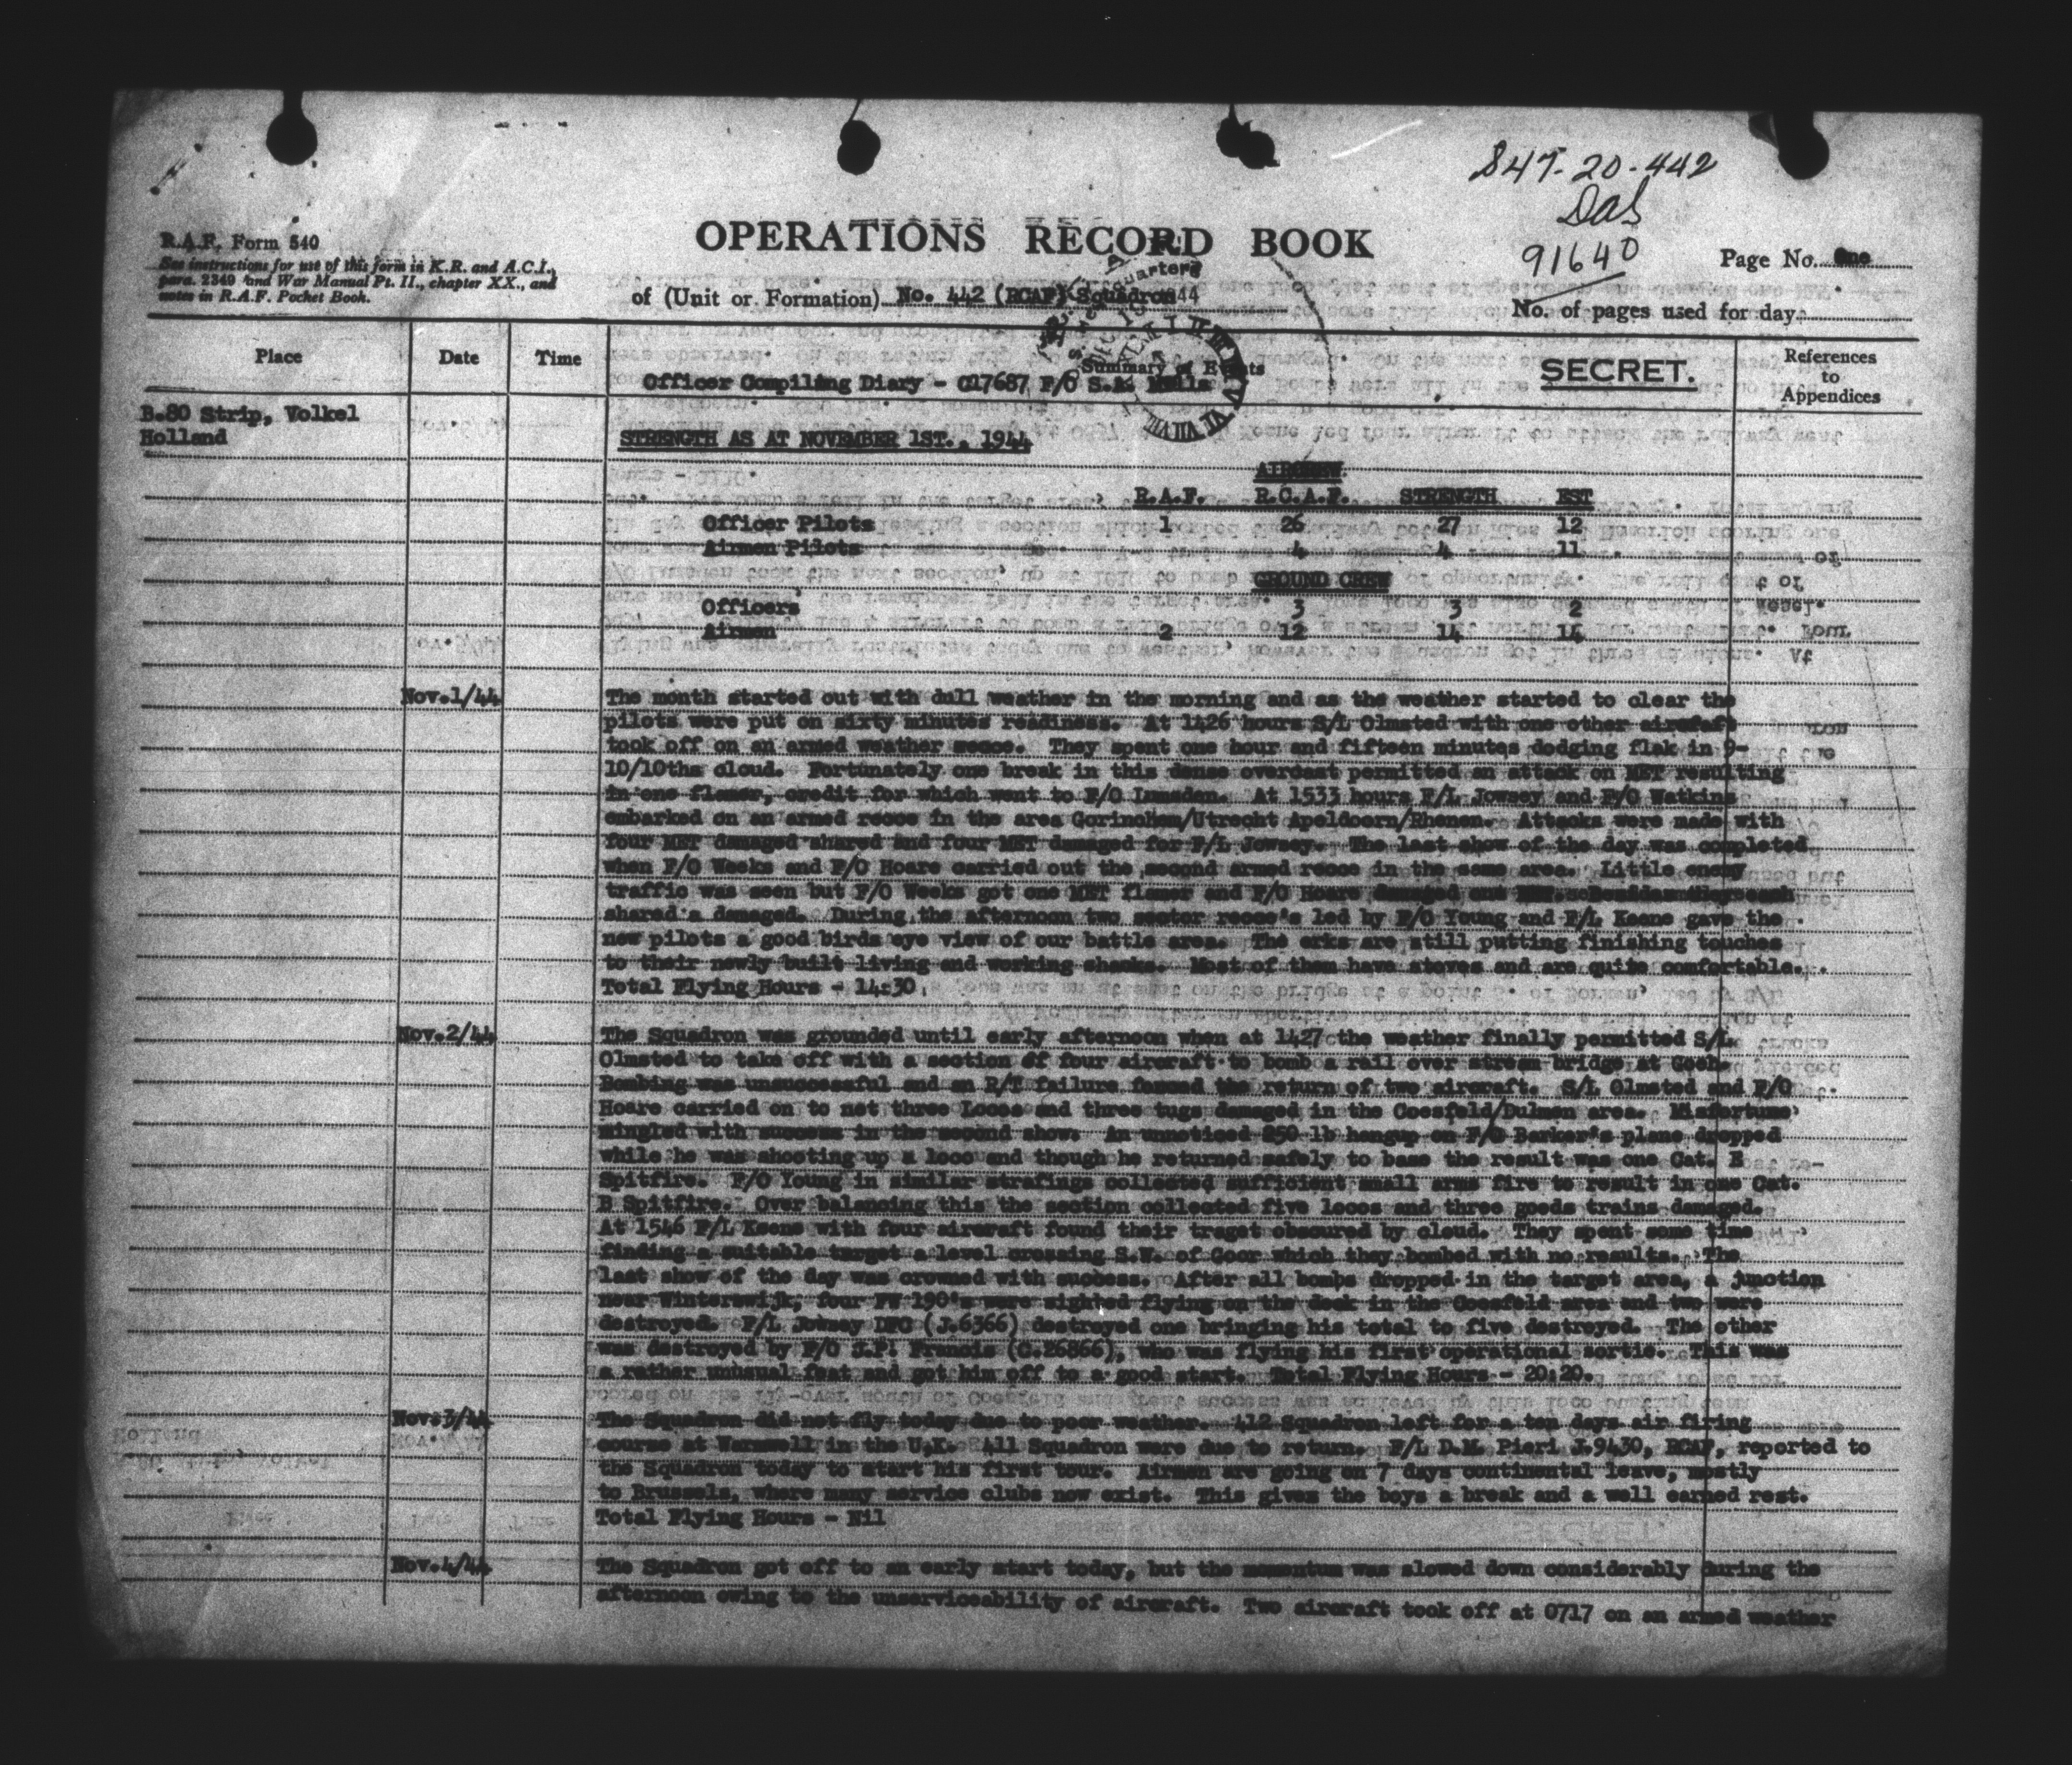 847-20-442
DaS
91640
R.A.F. Form 540
See instructions for use of this form in K.R. and A.C.I.,
para. 2349 and War Manual Pt. II., chapter XX., and
notes in R.A.F. Pocket Book.
OPERATIONS RECORD BOOK
Page No. One
of (Unit or Formation) No. 442 (RCAF) Squadron
No. of pages used for day
Place Date Time Summary of Events SECRET. References to Appendices
Officer Compiling Diary - C17687 F/O S.A. Mills
B.80 Strip, Volkel
Holland
STRENGTH AS AT NOVEMBER 1ST., 1944
AIRCREW
R.A.F. R.C.A.F. STRENGTH EST
Officer Pilots 1 26 27 12
Airmen Pilots 4 4 11
GROUND CREW
Officers 3 3 2
Airmen 2 12 14 14
Nov.1/44 The month started out with dull weather in the morning and as the weather started to clear the
pilots were put on sixty minutes readiness. At 1426 hours S/L Olmsted with one other aircraft
took off on an armed weather recce. They spent one hour and fifteen minutes dodging flak in 9-
10/10ths cloud. Fortunately one break in this dense overcast permitted an attack on MET resulting
in one flamer, credit for which went to F/O Lumsden. At 1533 hours F/L Jowsey and F/O Watkins
embarked on an armed recce in the area Gorinchem/Utrecht Apeldoorn/Rhenen. Attacks were made with
four MET damaged shared and four MET damaged for F/L Jowsey. The last show of the day was completed
when F/O Weeks and F/O Hoare carried out the second armed recce in the same area. Little enemy
traffic was seen but F/O Weeks got one MET flamer and F/O Hoare
shared a damaged. During the afternoon two sector recce's led by F/O Young and F/L Keene gave the
new pilots a good birds eye view of our battle area. The erks are still putting finishing touches
to their newly built living and working shacks. Most of them have stoves and are quite comfortable.
Total Flying Hours - 14:30
Nov.2/44 The Squadron was grounded until early afternoon when at 1427 the weather finally permitted S/L
Olmsted to take off with a section of four aircraft to bomb a rail over stream bridge at Goch.
Bombing was unsuccessful and an R/T failure forced the return of two aircraft. S/L Olmsted and F/O
Hoare carried on to net three Locos and three tugs damaged in the Coesfeld/Dulmen area. Misfortune
mingled with success in the second show. An unnoticed 250 lb hangup on F/O Barker's plane dropped
while he was shooting up a loco and though he returned safely to base the result was one Cat. E
Spitfire. F/O Young in similar strafings collected sufficient small arms fire to result in one Cat.
B Spitfire. Over balancing this the section collected five locos and three goods trains damaged.
At 1546 F/L Keene with four aircraft found their traget obscured by cloud. They spent some time
finding a suitable target a level crossing S.W. of Goor which they bombed with no results. The
last show of the day was crowned with success. After all bombs dropped in the target area, a junction
near Winterswijk, four FW 190's were sighted flying on the deck in the Coesfeld area and two were
destroyed. F/L Jowsey DFC (J.6366) destroyed one bringing his total to five destroyed. The other
was destroyed by F/O J.P. Francis (C.26866), who was flying his first operational sortie. This was
a rather unusual feat and got him off to a good start. Total Flying Hours - 20:20.
Nov.3/44 The Squadron did not fly today due to poor weather. 412 Squadron left for a ten days air firing
course at Warmwell in the U.K. 411 Squadron were due to return. F/L D.M. Pieri J.9430, RCAF, reported to
the Squadron today to start his first tour. Airmen are going on 7 days continental leave, mostly
to Brussels, where many service clubs now exist. This gives the boys a break and a well earned rest.
Total Flying Hours - Nil
Nov.4/44 The Squadron got off to an early start today, but the momentum was slowed down considerably during the
afternoon owing to the unserviceability of aircraft. Two aircraft took off at 0717 on an armed weather